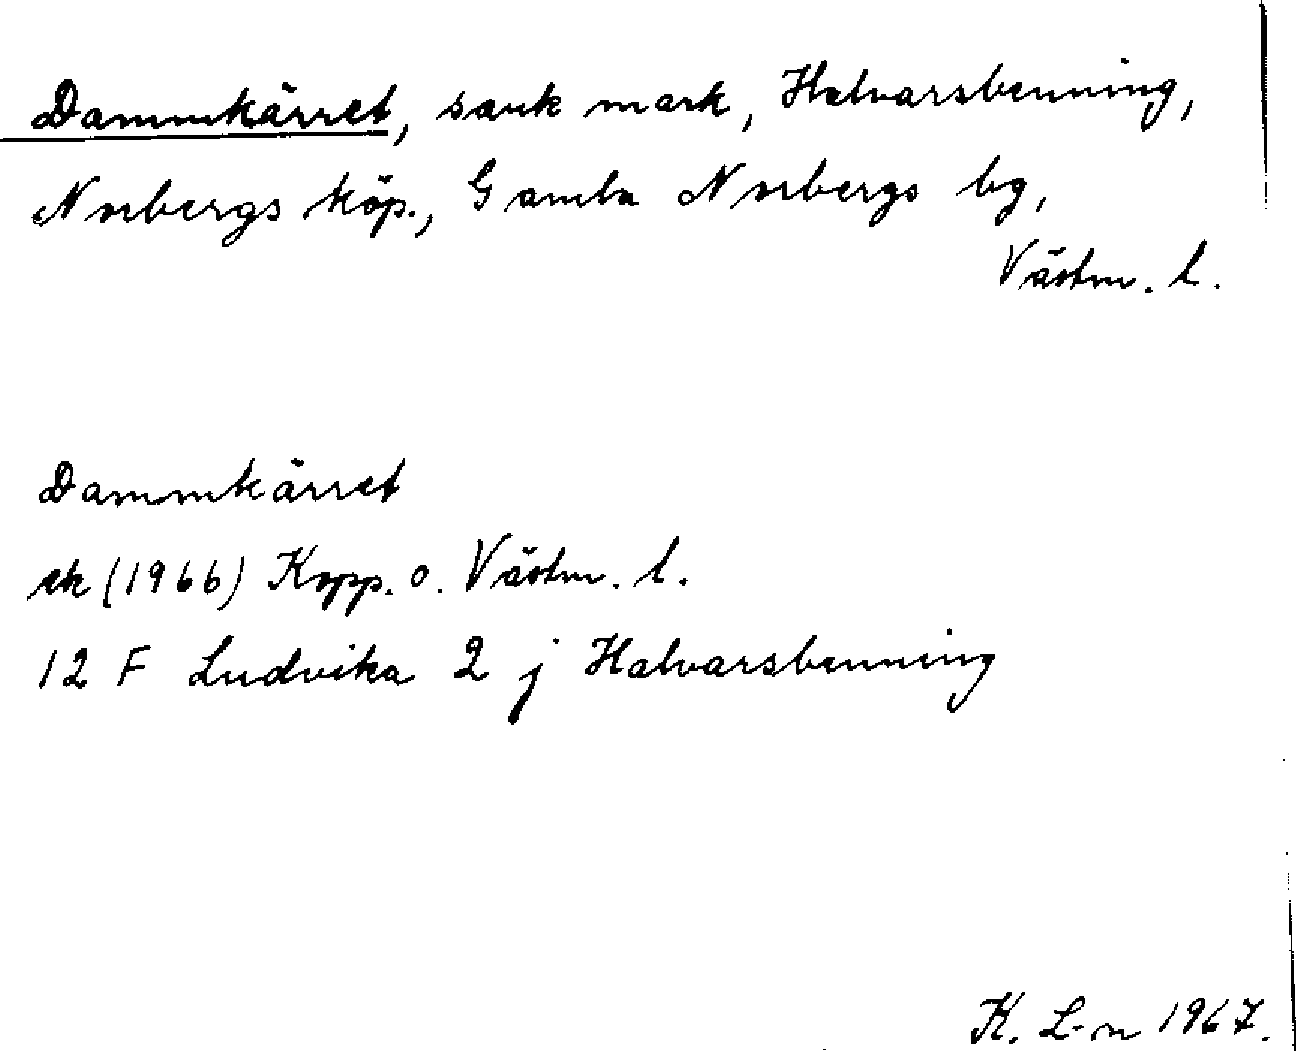 Dammkärret, sank mark, Halvarsbenning,
Norbergs köp., Gamla Norbergs bg,
Västm. l.
Dammkärret
ek (1966) Kopp. o. Västm. l.
12 F Ludvika 2 j Halvarsbenning
K. L-n 1967.